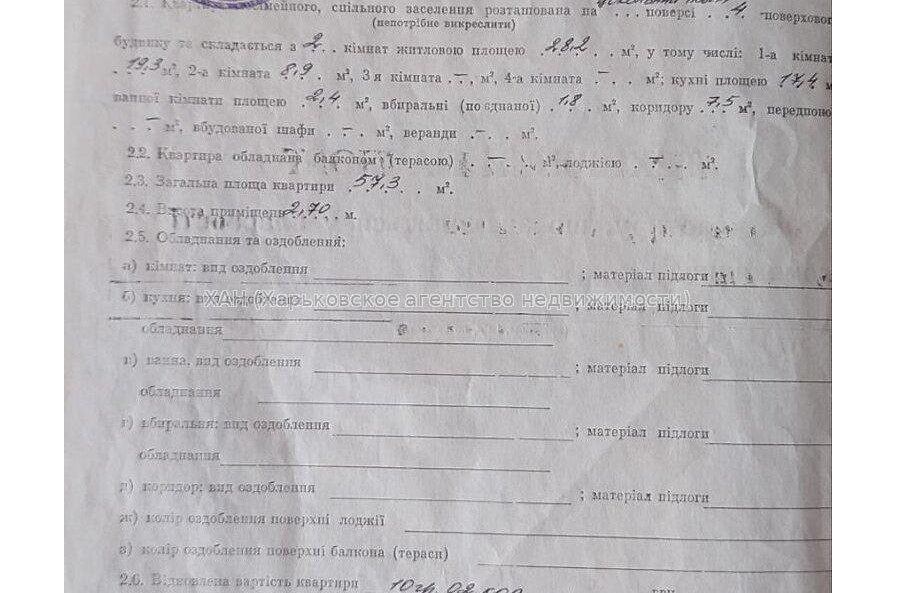 2.1. Квартира сімейного, спільного заселення розташована на ... поверсі . 4. -поверхового
(непотрібне викреслити)
будинку та складається з 2. . кімнат житловою площею .28,2 . . м², у тому числі: 1-а кімнат
.19,3 м², 2-а кімната 8,9 . м², 3 я кімната . — , м², 4-а кімната — . . м²; кухні площею 17,4 м
ванної кімнати площею .2,4. м², вбиральні (поєднаної) .1,8 . м², коридору 7,5 м², передпоко
. . . — м², вбудованої шафи . — . м², веранди .—. . м².
2.2. Квартира обладнана балконом (терасою) . — . . м², лоджією . — . . м².
2.3. Загальна площа квартири .57,3 . . м².
2.4. Висота приміщень 2,70 . м.
2.5. Обладнання та оздоблення:
а) кімнат: вид оздоблення ; матеріал підлоги
ХАН (Харьковское агентство недвижимости)
б) кухня: вид оздоблення ; матеріал підлоги
обладнання
в) ванна, вид оздоблення ; матеріал підлоги
обладнання
г) вбиральня: вид оздоблення ; матеріал підлоги
обладнання
д) коридор: вид оздоблення ; матеріал підлоги
ж) колір оздоблення поверхні лоджії
з) колір оздоблення поверхні балкона (тераси)
2.6. Відновлена вартість квартири 10 грн